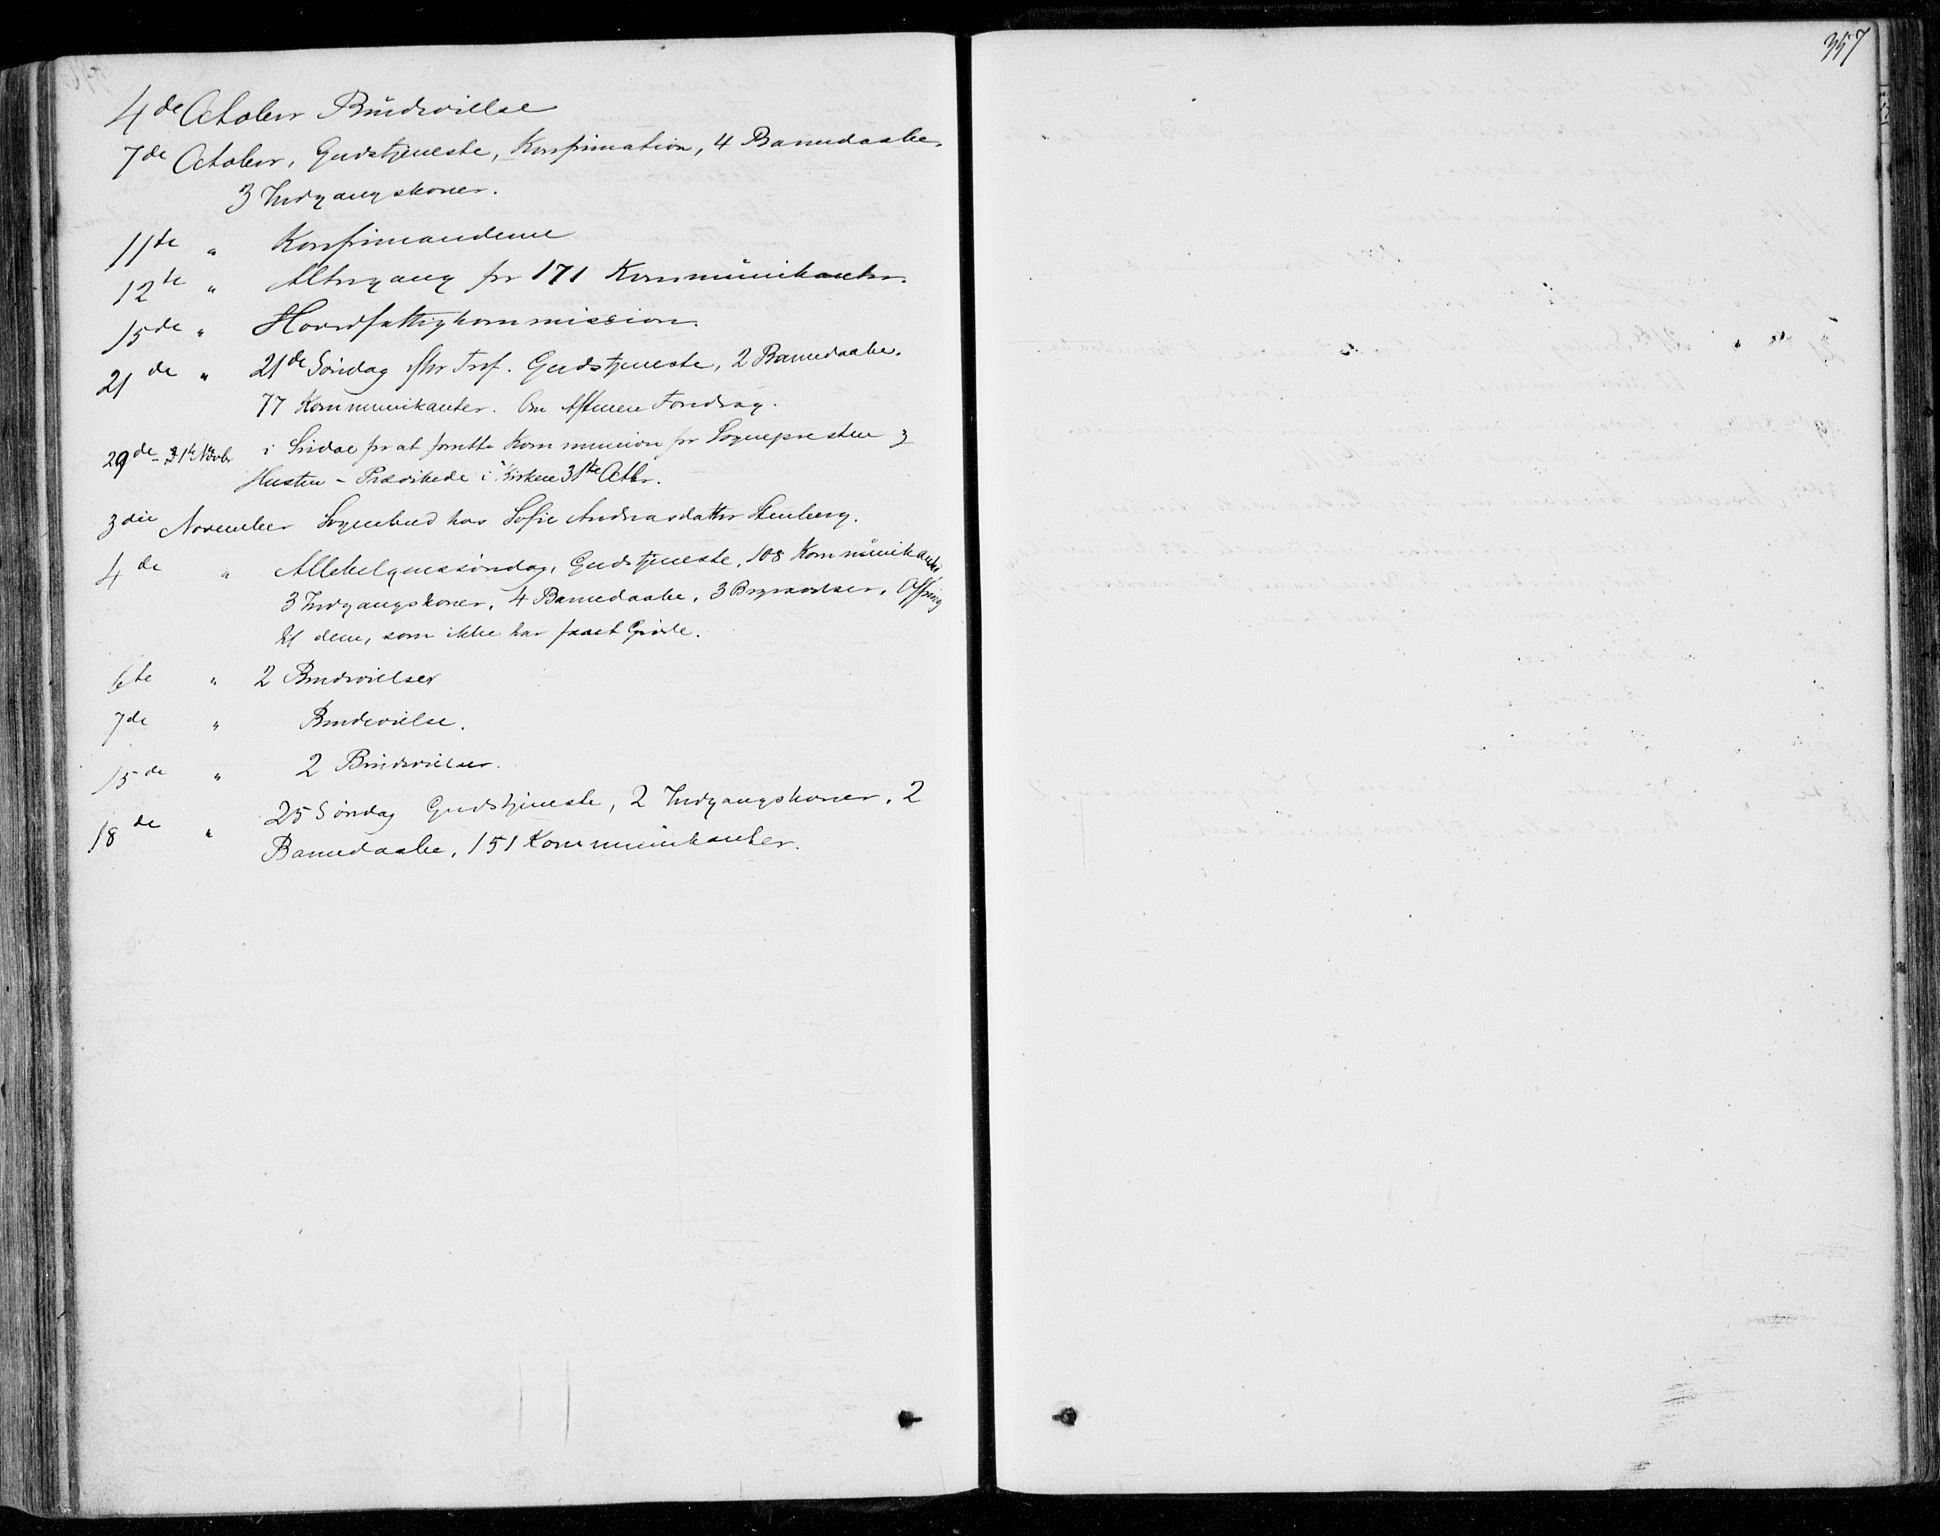 357
4de October Brudevielse
7de October, Gudstjeneste, Konfirmation, 4 Barnedaabe,
3 Indgangskoner.
11te " Konfirmanderne
12te " Altergang for 171 Kommunikanter.
15de " Hovedfattigkommission.
21de " 21de Søndag efter Tref. Gudstjeneste, 2 Barnedaabe.
77 Kommunikanter. Om Aftenen Foredrag.
29de - 31te Novbr i for at forrette Kommunion for Sognepresten &
Hustru - Prædikede i Kirken 31te Octbr.
3die November Sognebud hos Sofie Andreasdatter Stenberg.
4de " Allehelgenssøndag, Gudstjeneste, 108 Kommunikanter
3 Indgangskoner, 4 Barnedaabe, 3 Begravelser, Offring
af dem, som ikke har faaet Grøde.
6te " 2 Brudevielser
7de " Brudevielse.
15de " 2 Brudevielser.
18de " 25 Søndag Gudstjeneste, 2 Indgangskoner, 2
Barnedaabe, 151 Kommunikanter.